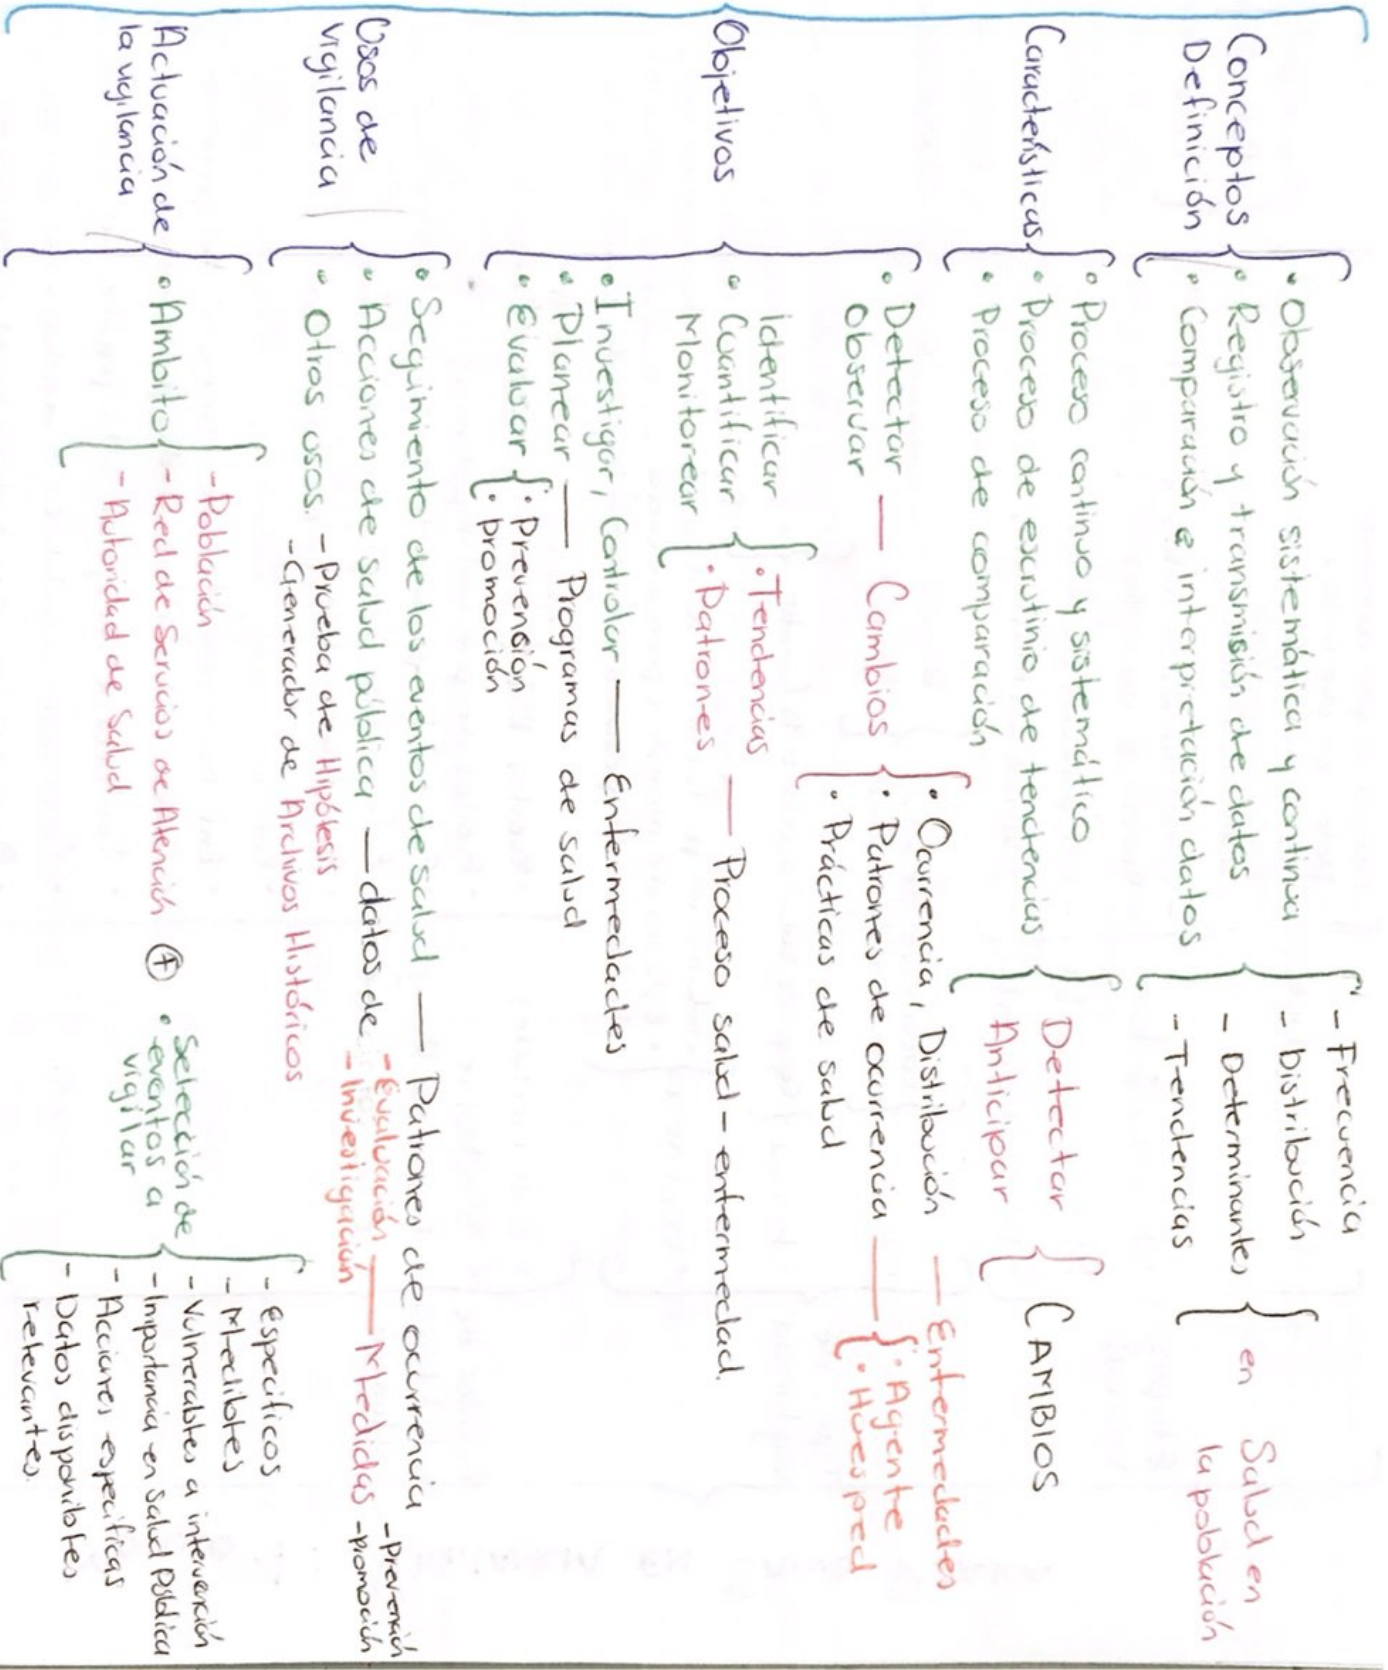 Conceptos
Definición
• Observación sistemática y continua
• Registro y transmisión de datos
• Comparación e interpretación datos
- Frecuencia
- Distribución
- Determinantes
- Tendencias
en Salud en
la población
Características
• Proceso continuo y sistemático
• Proceso de escrutinio de tendencias
• Proceso de comparación
Detectar
Anticipar
CAMBIOS
Objetivos
• Detectar
Observar
— Cambios
• Ocurrencia, Distribución — Enfermedades
• Patrones de ocurrencia —
• Agente
• Huesped
• Prácticas de salud
Identificar
• Cuantificar
Monitorear
• Tendencias
• Patrones — Proceso salud - enfermedad.
• Investigar, Controlar — Enfermedades
• Planear — Programas de salud
• Evaluar
• Prevensión
• promoción
Usos de
vigilancia
• Seguimiento de los eventos de salud — Patrones de ocurrencia
• Acciones de salud pública — datos de
- Evaluación
- Investigación
— Medidas
- Prevención
- promoción
• Otros usos.
- Prueba de Hipótesis
- Generador de Archivos Históricos
Actuación de
la vigilancia
• Ambito
- Población
- Red de Servicios de Atención
- Autoridad de Salud
+
• Selección de
eventos a
vigilar
- Especificos
- Medibles
- Vulnerables a intervención
- Importancia en salud pública
- Acciones especificas
- Datos disponibles
relevantes.